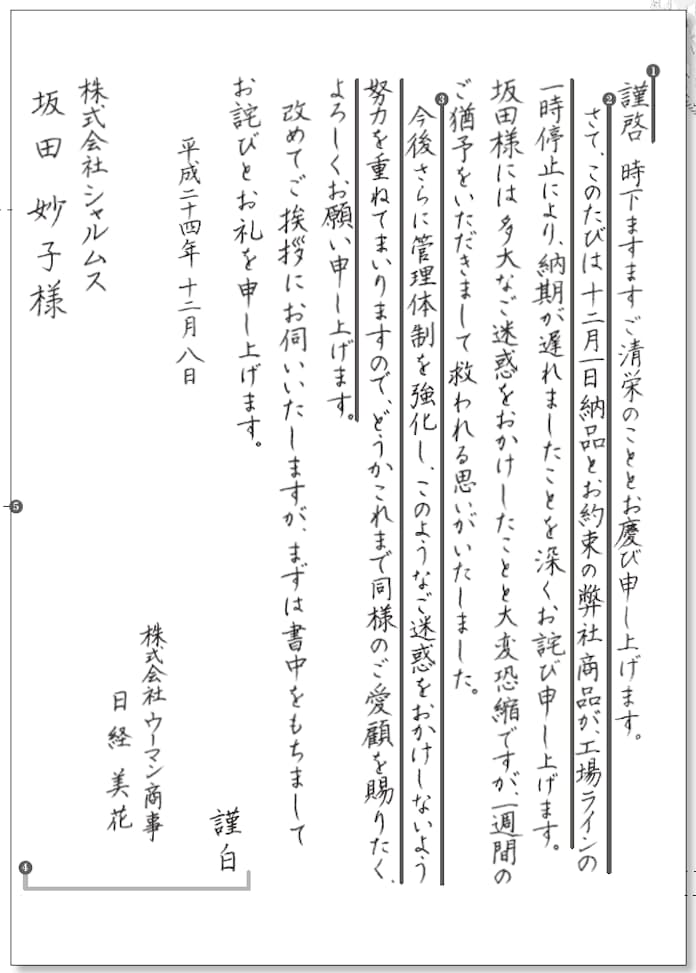 ❶
謹啓　時下ますますご清栄のこととお慶び申し上げます。
❷
さて、このたびは十二月一日納品とお約束の弊社商品が、工場ラインの
一時停止により、納期が遅れましたことを深くお詫び申し上げます。
坂田様には多大なご迷惑をおかけしたことと大変恐縮ですが、一週間の
ご猶予をいただきまして救われる思いがいたしました。
❸
今後さらに管理体制を強化し、このようなご迷惑をおかけしないよう
努力を重ねてまいりますので、どうかこれまで同様のご愛顧を賜りたく、
よろしくお願い申し上げます。
改めてご挨拶にお伺いいたしますが、まずは書中をもちまして
お詫びとお礼を申し上げます。
謹白
平成二十四年十二月八日
株式会社ウーマン商事
日経美花
株式会社シャルムス
坂田妙子様
❹
❺